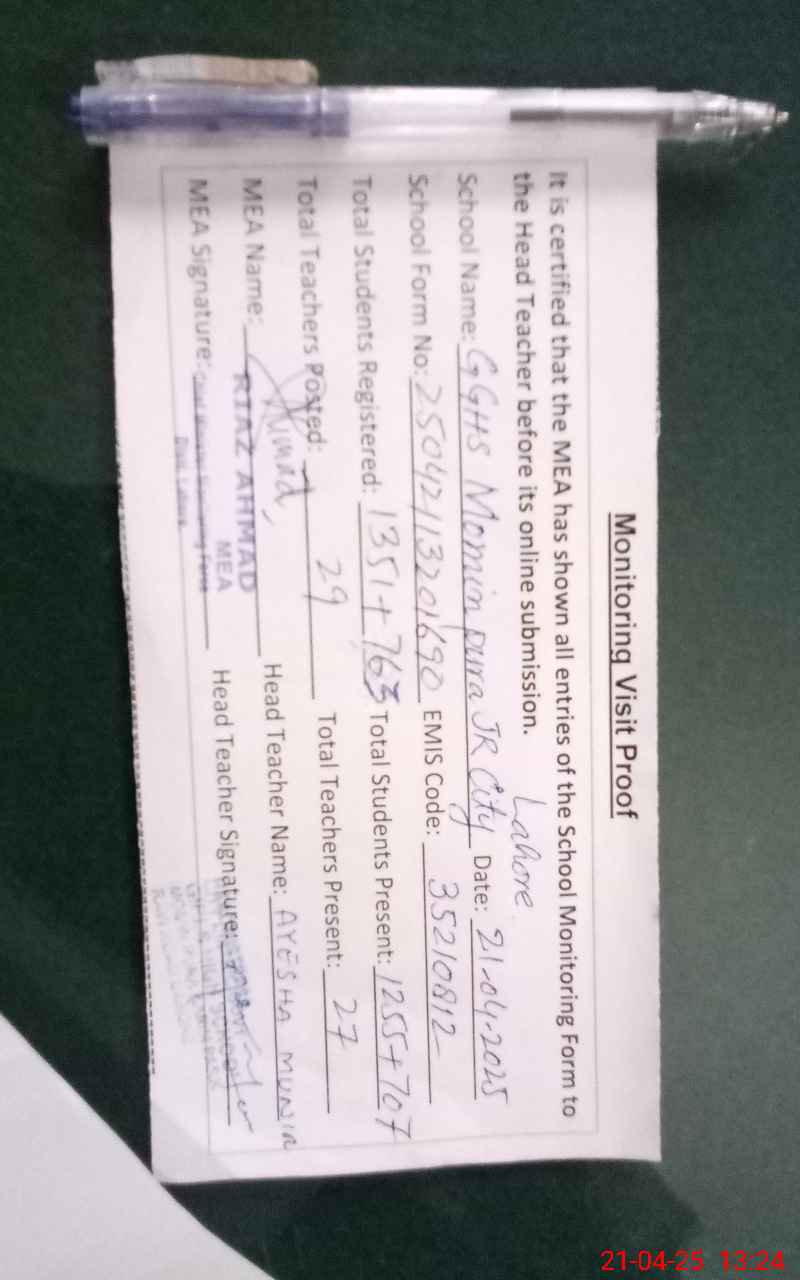 Monitoring Visit Proof
It is certified that the MEA has shown all entries of the School Monitoring Form to
the Head Teacher before its online submission.
Lahore
School Name: GGHS Mominpura JR City Date: 21-04-2025
School Form No: 25042113201690 EMIS Code: 35210812
Total Students Registered: 1351+763 Total Students Present: 1255+707
Total Teachers Posted: 29 Total Teachers Present: 27
MEA Name: RIAZ AHMAD Head Teacher Name: AYESHA MUNIR
MEA
MEA Signature: Head Teacher Signature:
21-04-25 13:24